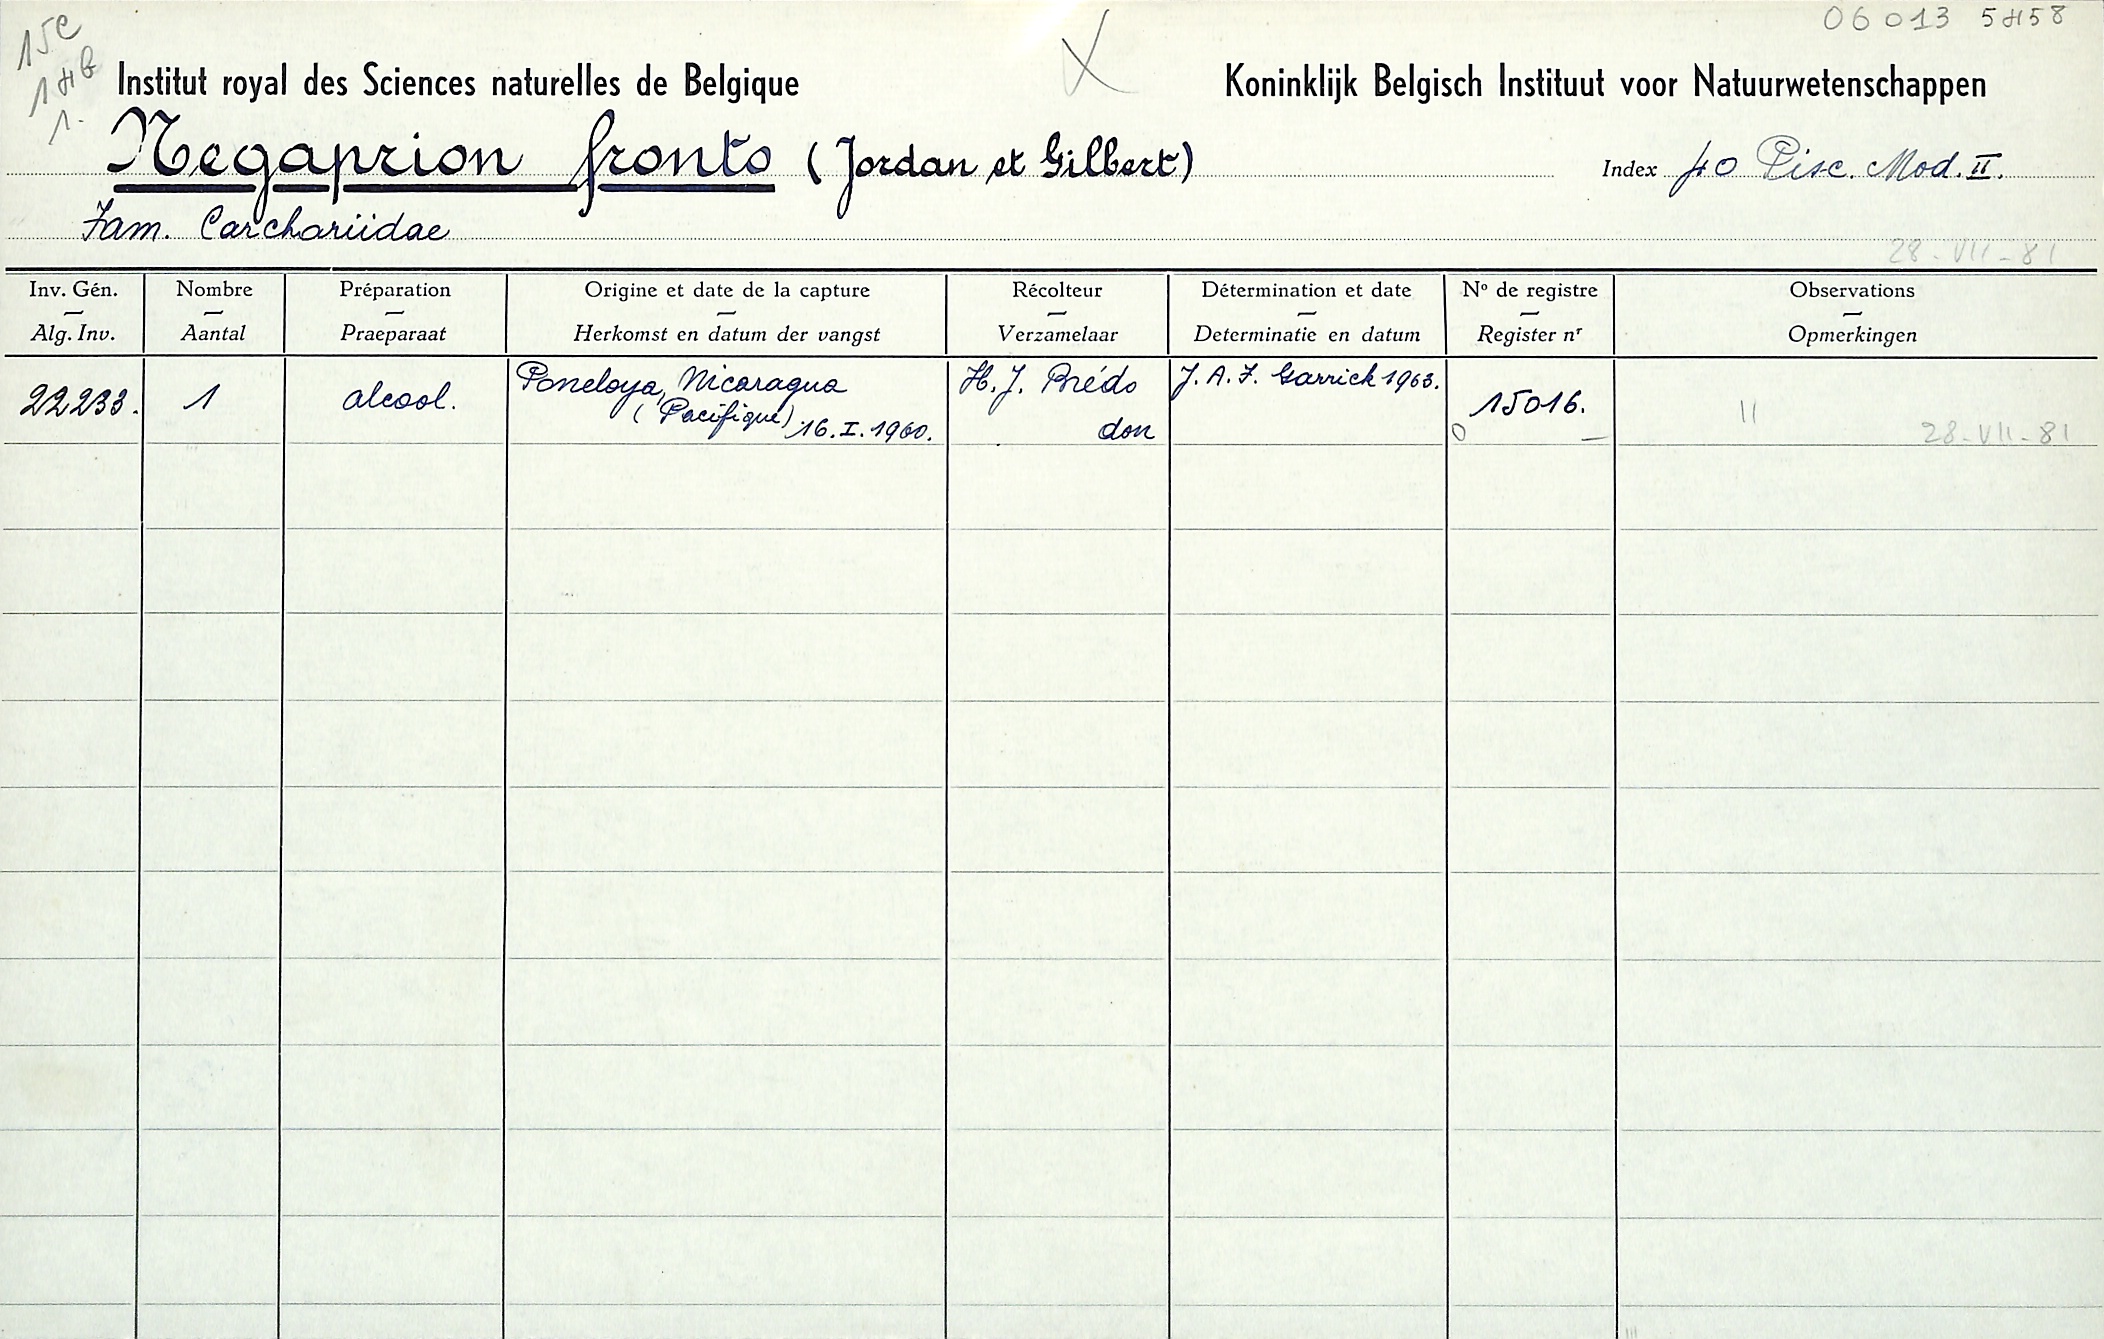 15c
14b
1.
06 013 5458
Institut royal des Sciences naturelles de Belgique
Koninklijk Belgisch Instituut voor Natuurwetenschappen
Negaprion fronto (Jordan et Gilbert)
Index 40 Pisc. Mod. II.
Fam. Carchariidae
28-VII-81
Inv. Gén. Nombre Préparation Origine et date de la capture Récolteur Détermination et date No de registre Observations
Alg. Inv. Aantal Praeparaat Herkomst en datum der vangst Verzamelaar Determinatie en datum Register nr Opmerkingen
22233. 1 alcool. Poneloya, Nicaragua H. J. Brédo J. A. F. Garrick 1963. 15016.
(Pacifique) 16.I.1960. don 28-VII-81